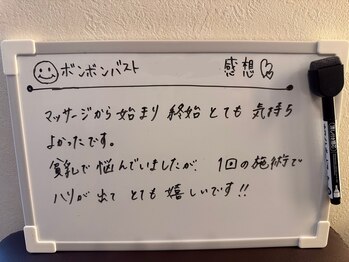 ボンボンバスト 感想
マッサージから始まり 終始とても気持ち
よかったです。
貧乳で悩んでいましたが、1回の施術で
ハリが出て とても嬉しいです!!